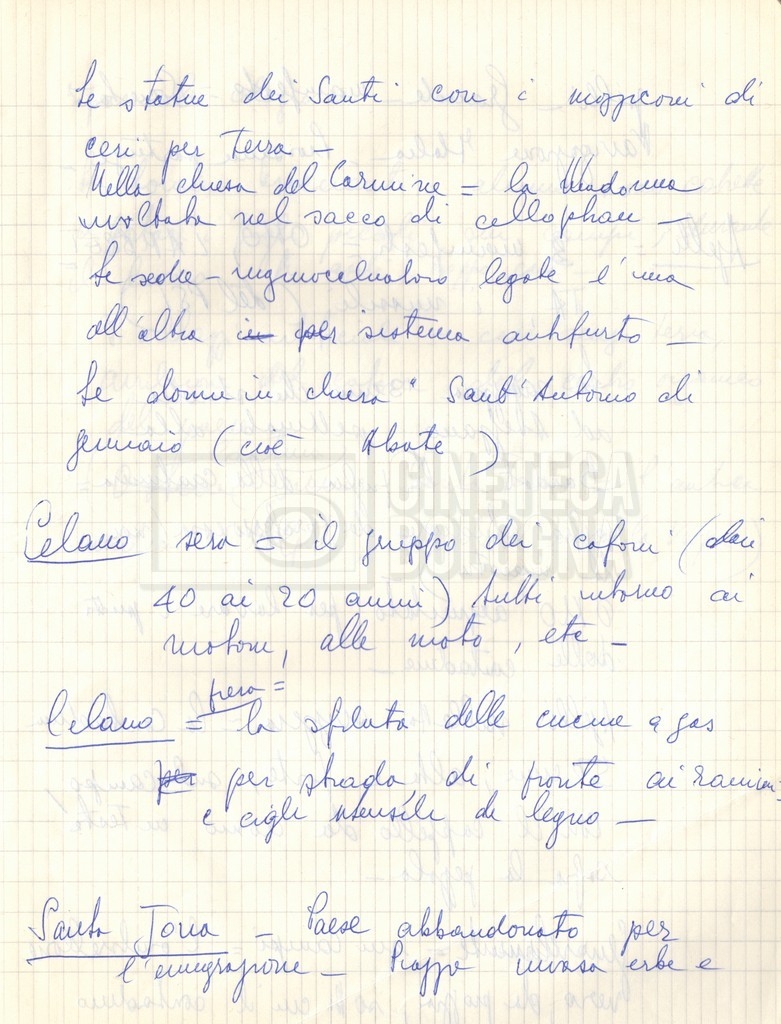 Le statue dei Santi con i mozziconi di
ceri per terra —
Nella chiesa del Carmine = la Madonna
involtata nel sacco di cellophan —
Le sedie - inginocchiatoio legate l'una
all'altra in per sistema antifurto —
Le donne in chiesa " Sant'Antonio di
gennaio (cioè Abate)
CINETECA
BOLOGNA
Celano sera = il gruppo dei cafoni (dai
40 ai 20 anni) tutti intorno ai
motori, alle moto, etc —
fiera =
Celano = la sfilata delle cucine a gas
per per strada, di fronte ai ramieri
e agli utensili di legno —
Santa Jona — Paese abbandonato per
l'emigrazione — Piazza invasa erbe e